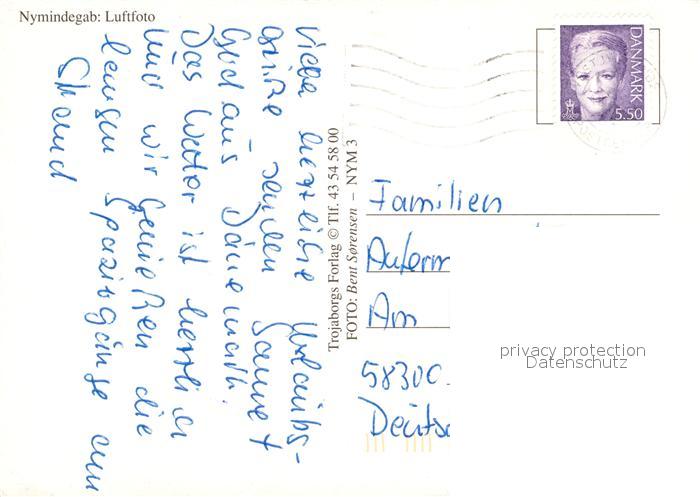 Nymindegab: Luftfoto
Viele herzliche Urlaubs-
grüße senden
Gerd aus Dänemark.
Das Wetter ist herrlich
und wir genießen die
langen Spaziergänge am
Strand
Trojaborgs Forlag © Tlf. 43 54 58 00
FOTO: Bent Sørensen – NYM 3
DANMARK
5.50
Familien
Am
58300
Deutsc
privacy protection
Datenschutz